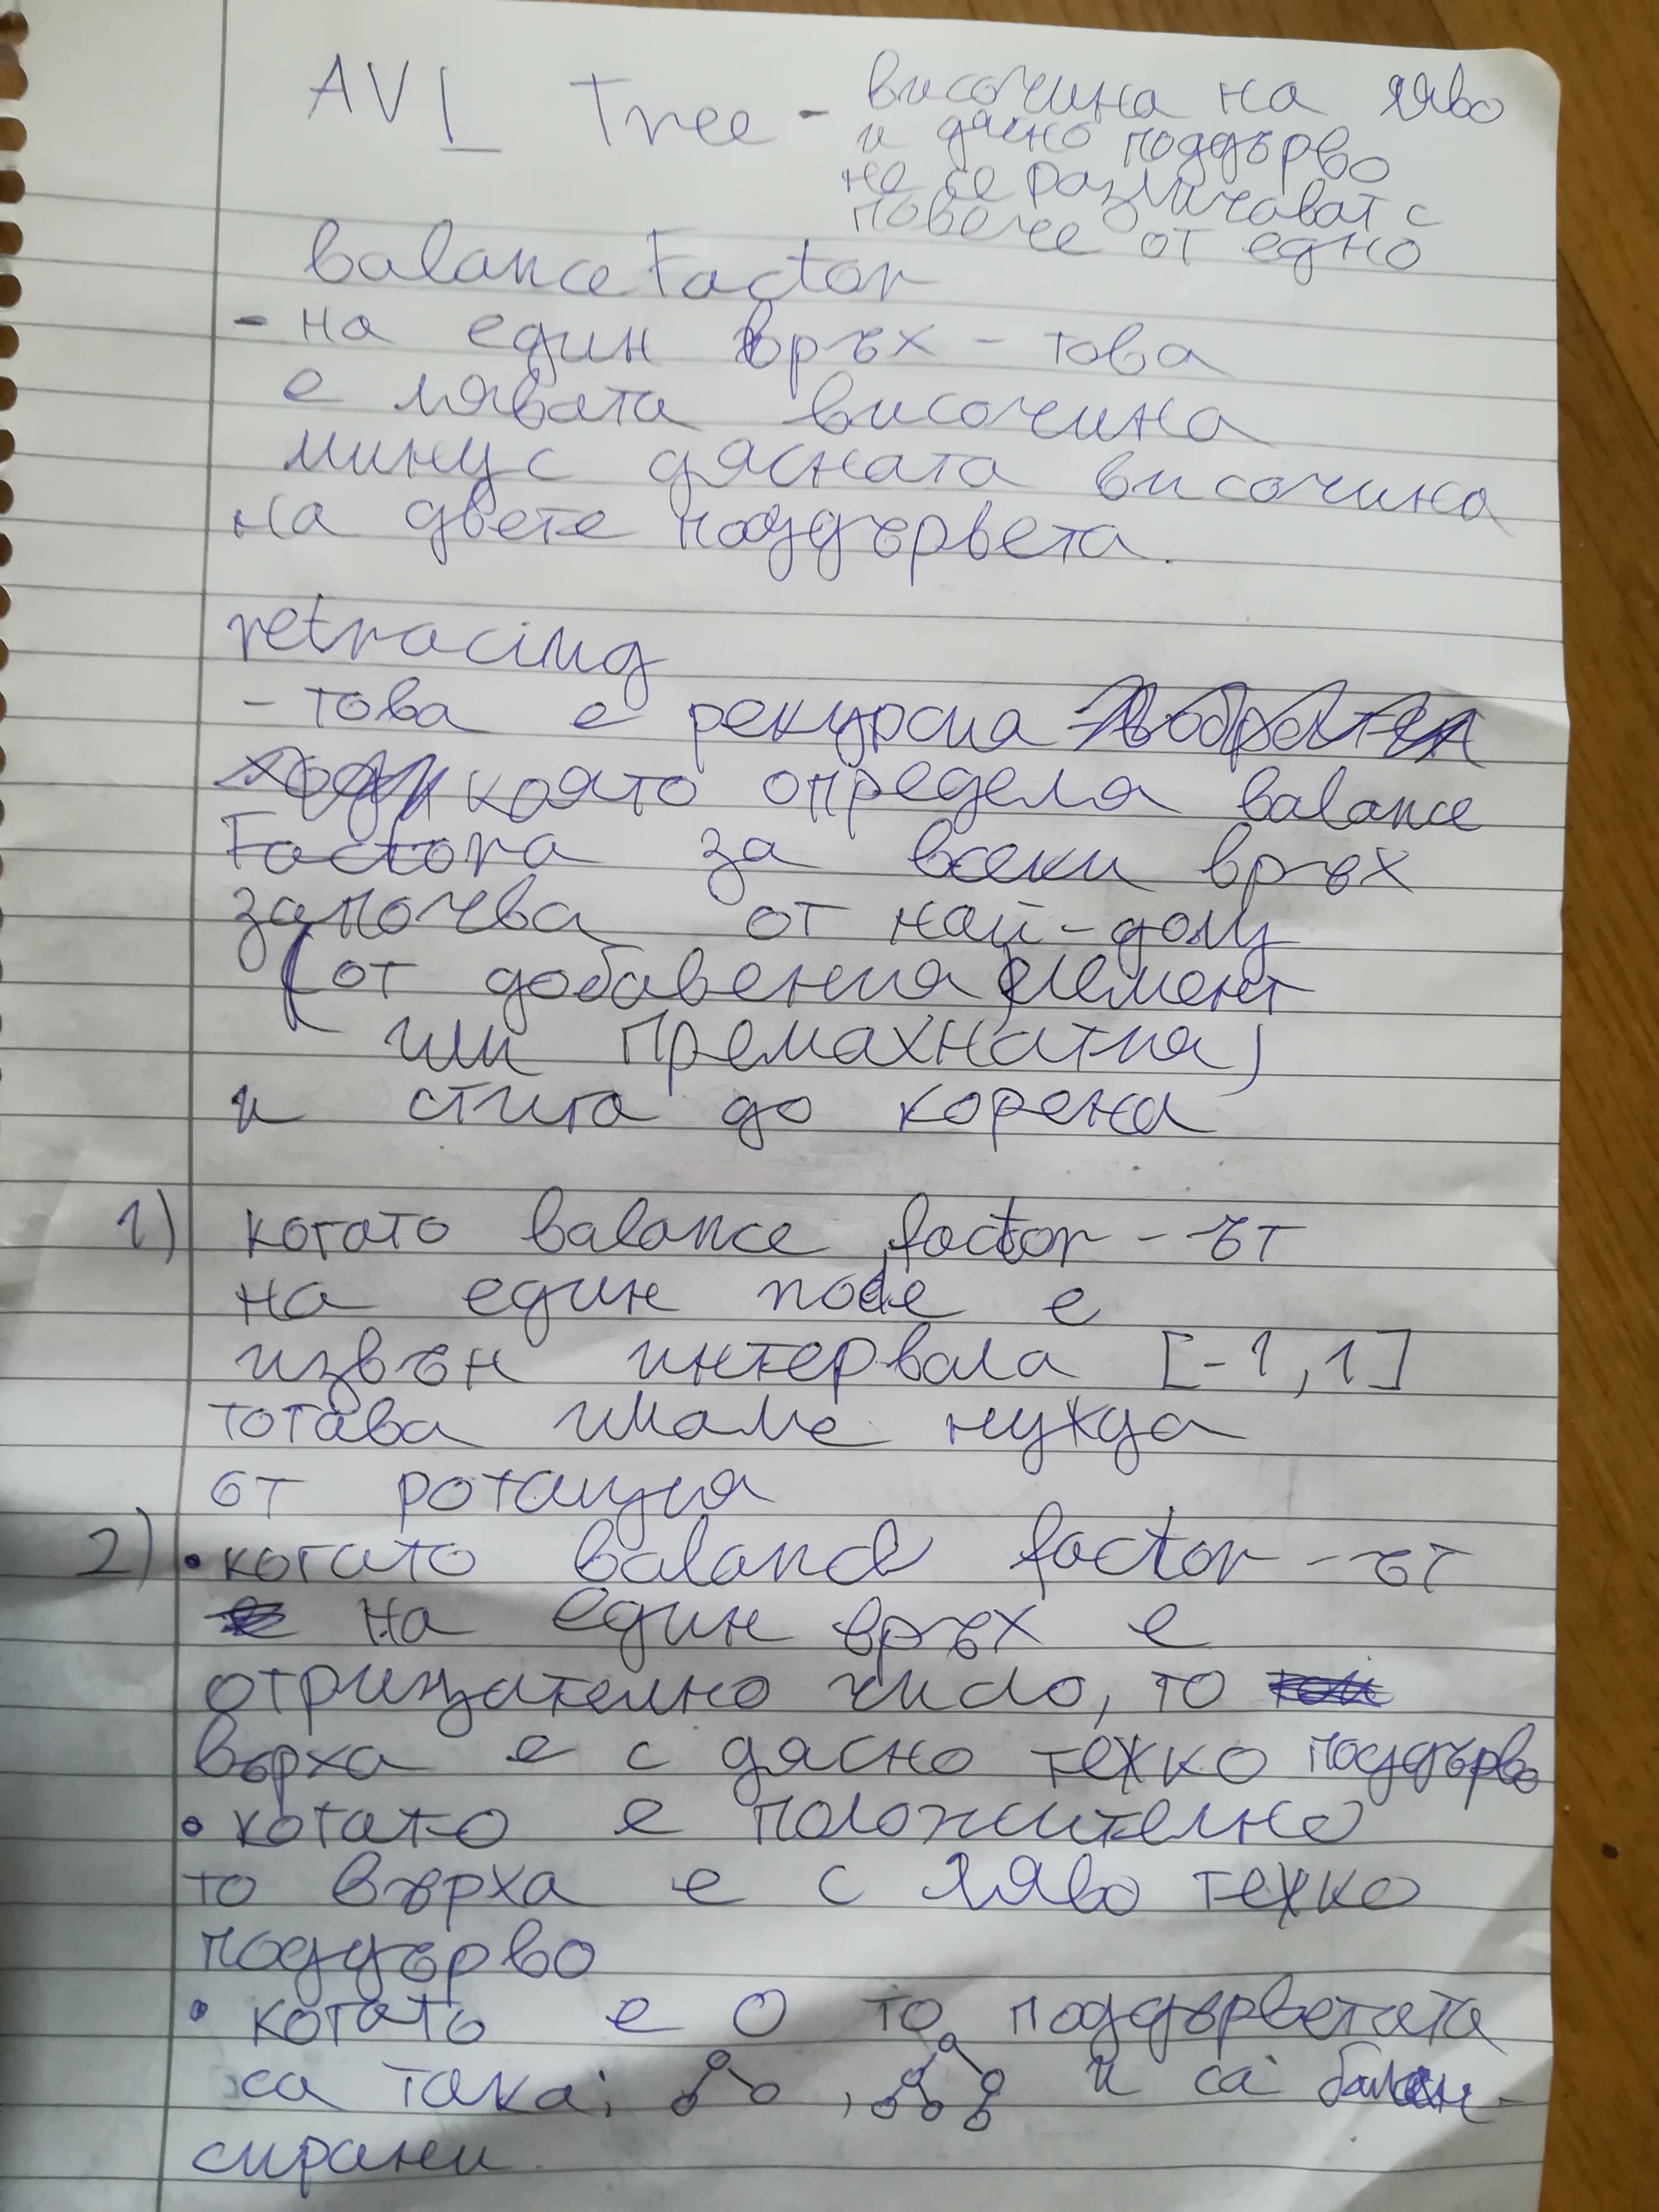 AVL Tree - височина на ляво
и дясно поддърво
не се различават с
повече от едно
balance Factor
- на един връх - това
е лявата височина
минус дясната височина
на двете поддървета.
retracing
- това е рекурсия
която определя balance
Factora за всеки връх
започва от най-долу
(от добавения елемент
или премахнатия)
и стига до корена
1) когато balance factor-ът
на един node е
извън интервала [-1, 1]
тогава имаме нужда
от ротация
2) • когато balance factor-ът
на един връх е
отрицателно число, то
върха е с дясно тежко поддърво
• когато е положително
то върха е с ляво тежко
поддърво
• когато е 0 то поддърветата
са така: , и са балан-
сирани